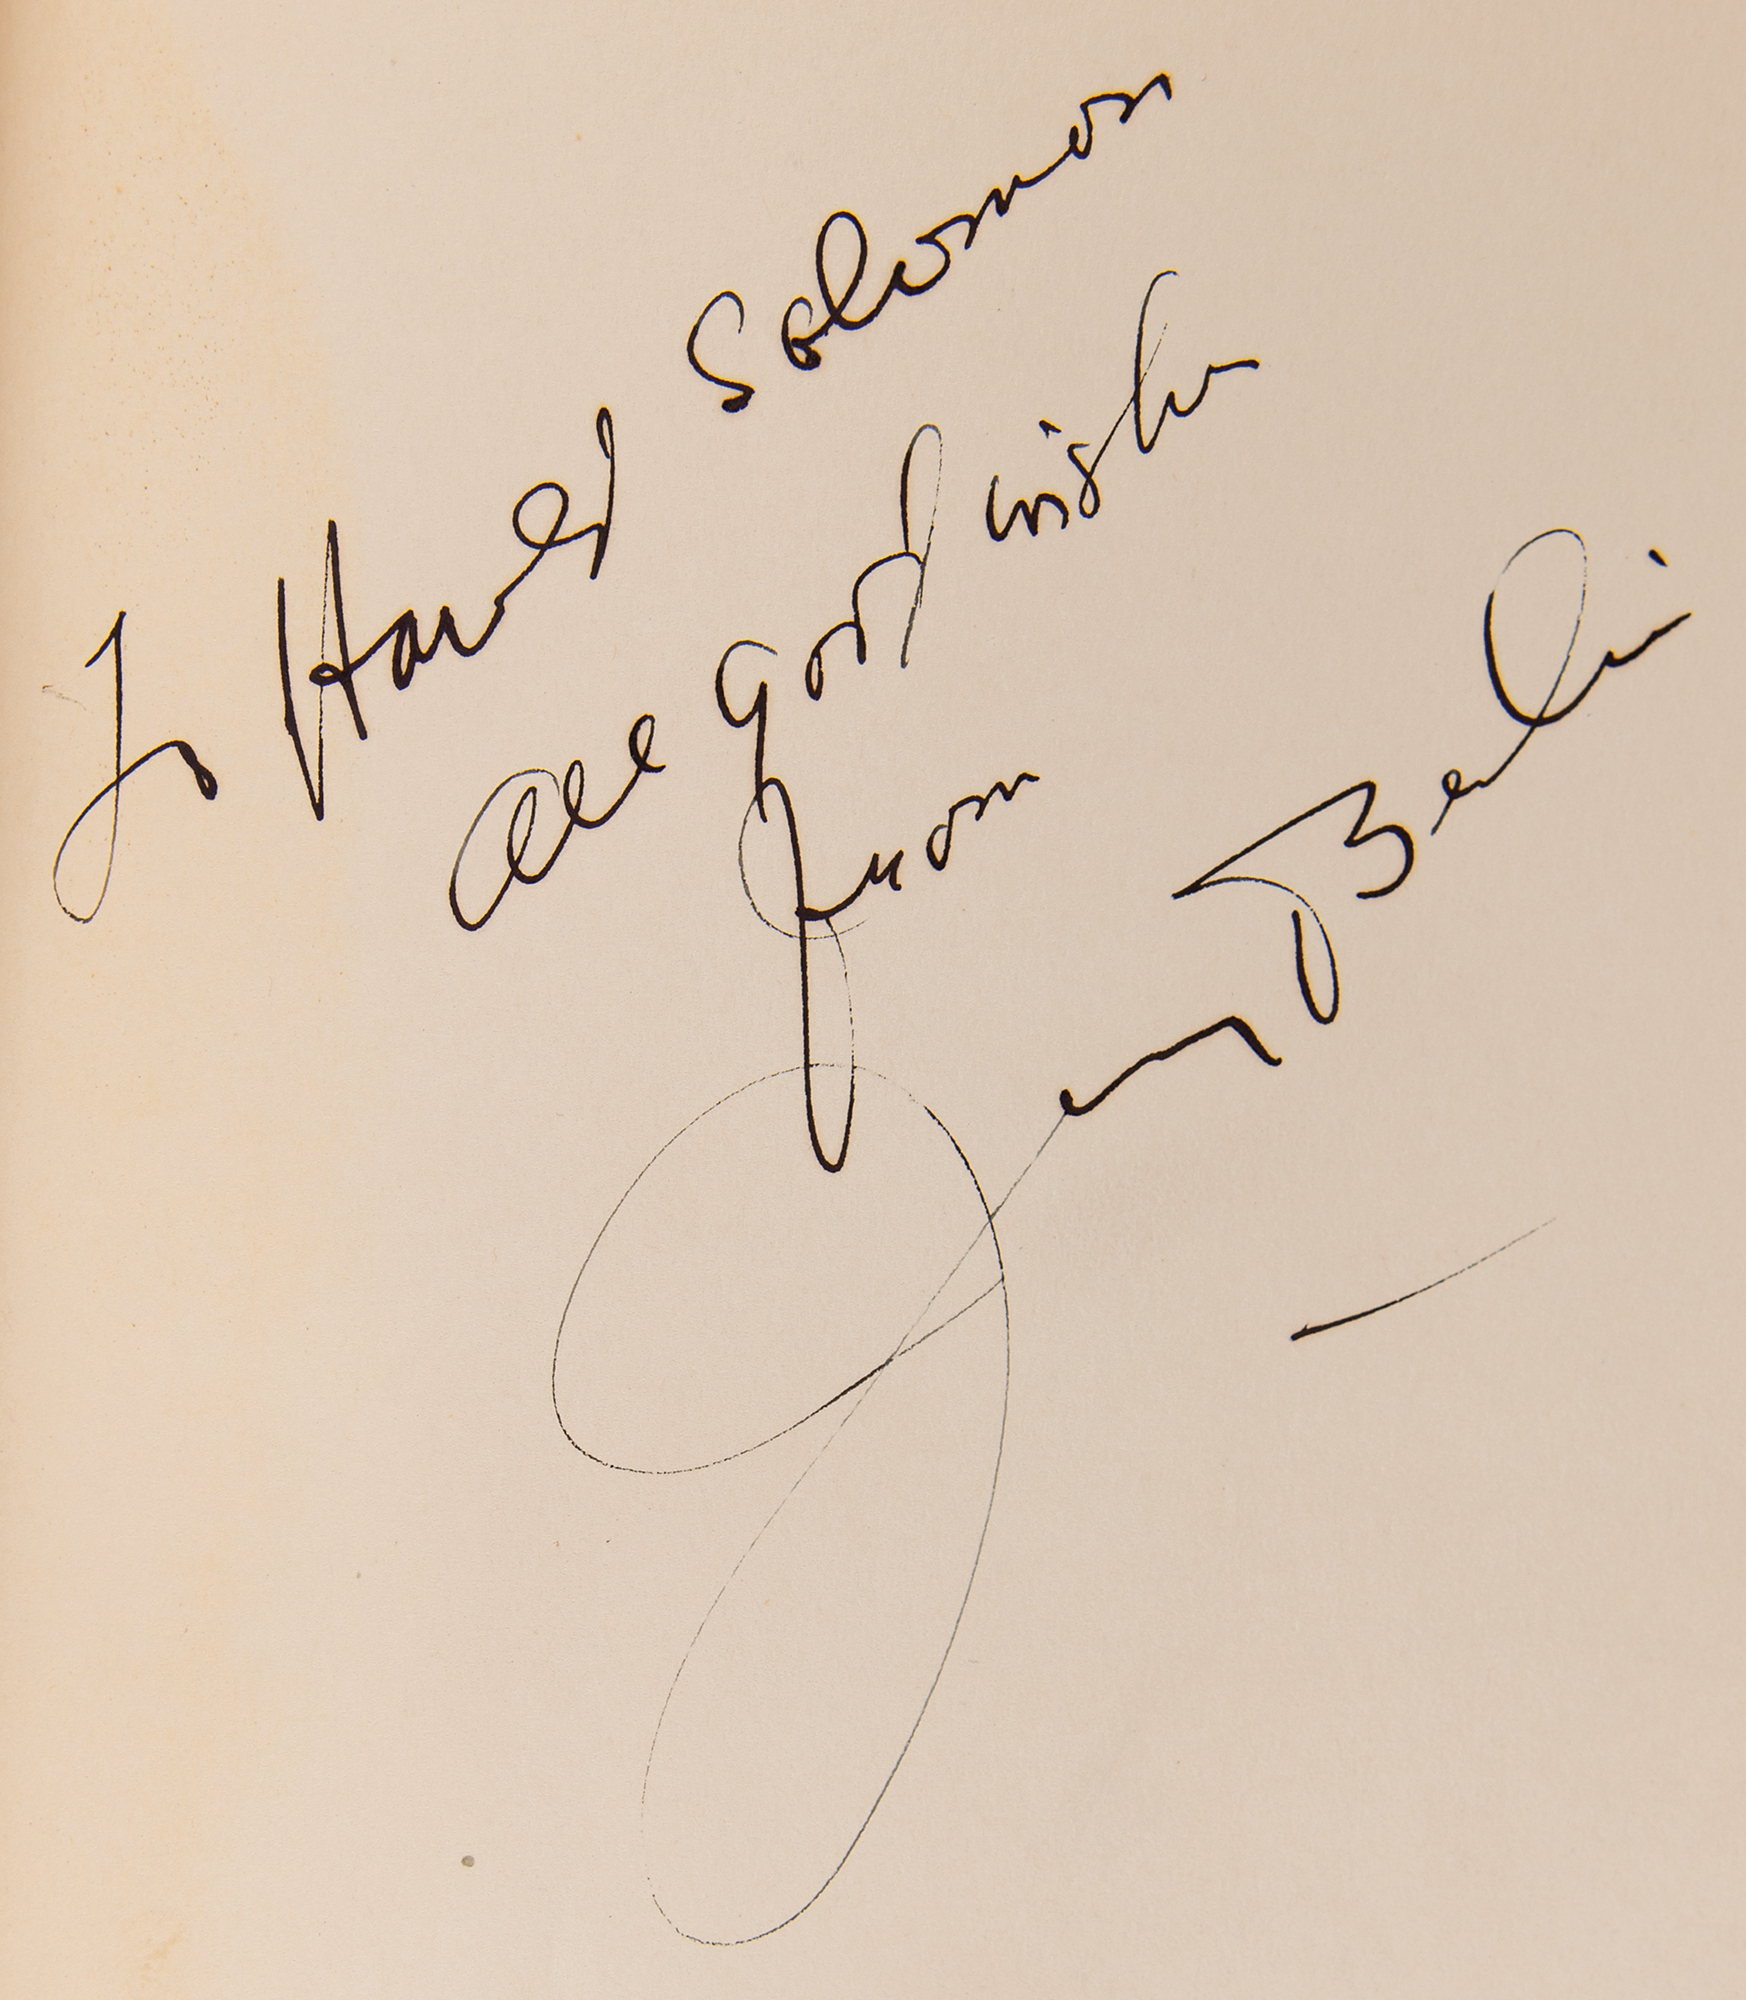 To Harold Solomon
all good wishes
from
Jerry Berlin